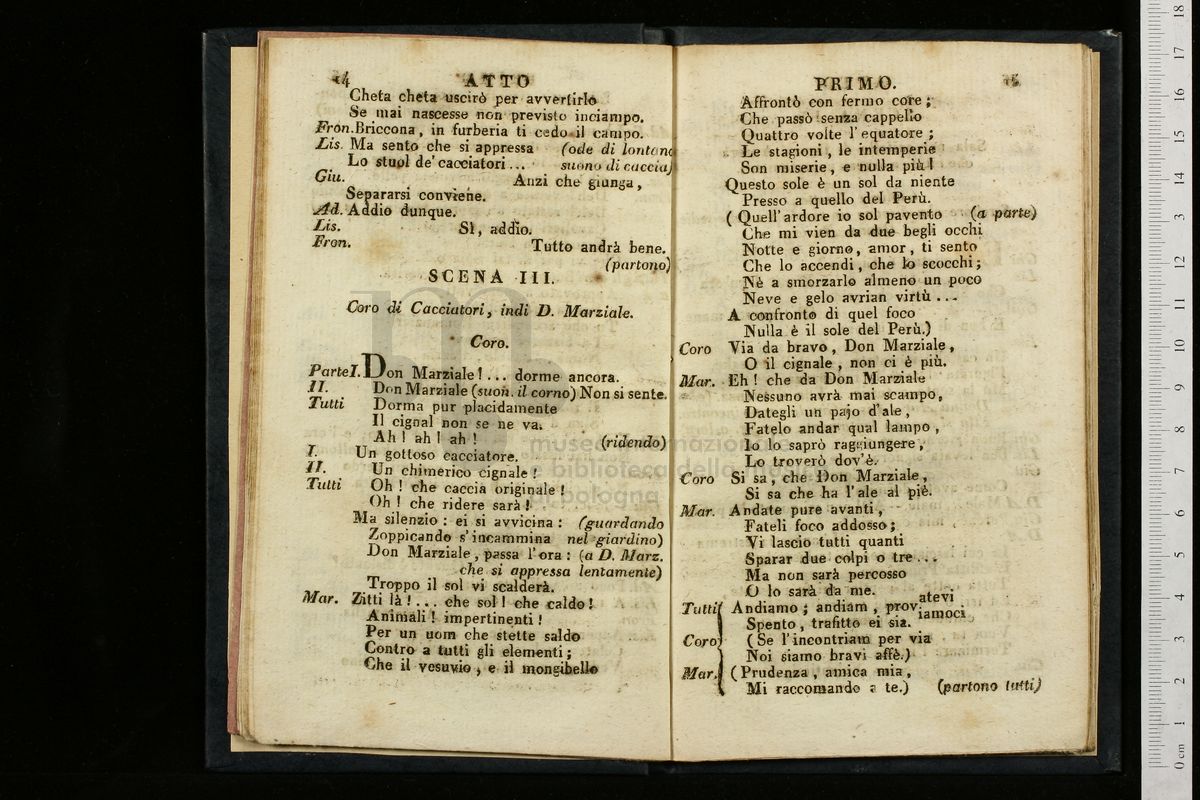 14 ATTO
Cheta cheta uscirò per avvertirlo
Se mai nascesse non previsto inciampo.
Fron. Briccona, in furberia ti cedo il campo.
Lis. Ma sento che si appressa (ode di lontano
Lo stuol de' cacciatori ... suono di caccia)
Giu. Anzi che giunga,
Separarsi conviene.
Ad. Addio dunque.
Lis. Sì, addio.
Fron. Tutto andrà bene.
(partono)
SCENA III.
Coro di Cacciatori, indi D. Marziale.
Coro.
Parte I. Don Marziale! ... dorme ancora.
II. Don Marziale (suon. il corno) Non si sente.
Tutti Dorma pur placidamente
Il cignal non se ne va.
Ah! ah! ah! (ridendo)
I. Un gottoso cacciatore.
II. Un chimerico cignale!
Tutti Oh! che caccia originale!
Oh! che ridere sarà!
Ma silenzio: ei si avvicina: (guardando
Zoppicando s'incammina nel giardino)
Don Marziale, passa l'ora: (a D. Marz.
che si appressa lentamente)
Troppo il sol vi scalderà.
Mar. Zitti là! ... che sol! che caldo!
Animali! impertinenti!
Per un uom che stette saldo
Contro a tutti gli elementi;
Che il vesuvio, e il mongibello
PRIMO. 15
Affrontò con fermo core;
Che passò senza cappello
Quattro volte l'equatore;
Le stagioni, le intemperie
Son miserie, e nulla più!
Questo sole è un sol da niente
Presso a quello del Perù.
(Quell'ardore io sol pavento (a parte)
Che mi vien da due begli occhi
Notte e giorno, amor, ti sento
Che lo accendi, che lo scocchi;
Nè a smorzarlo almeno un poco
Neve e gelo avrian virtù ...
A confronto di quel foco
Nulla è il sole del Perù.)
Coro Via da bravo, Don Marziale,
O il cignale, non ci è più.
Mar. Eh! che da Don Marziale
Nessuno avrà mai scampo,
Dategli un pajo d'ale,
Fatelo andar qual lampo,
Io lo saprò raggiungere,
Lo troverò dov'è.
Coro Si sa, che Don Marziale,
Si sa che ha l'ale al piè.
Mar. Andate pure avanti,
Fateli foco addosso;
Vi lascio tutti quanti
Sparar due colpi o tre ...
Ma non sarà percosso
O lo sarà da me.
Tutti Andiamo; andiam, provatevi
iamoci
Spento, trafitto ei sia.
Coro (Se l'incontriam per via
Noi siamo bravi affè.)
Mar. (Prudenza, amica mia,
Mi raccomando a te.) (partono tutti)
museo internazionale
e biblioteca della musica
di bologna
0 cm 1 2 3 4 5 6 7 8 9 10 11 12 13 14 15 16 17 18